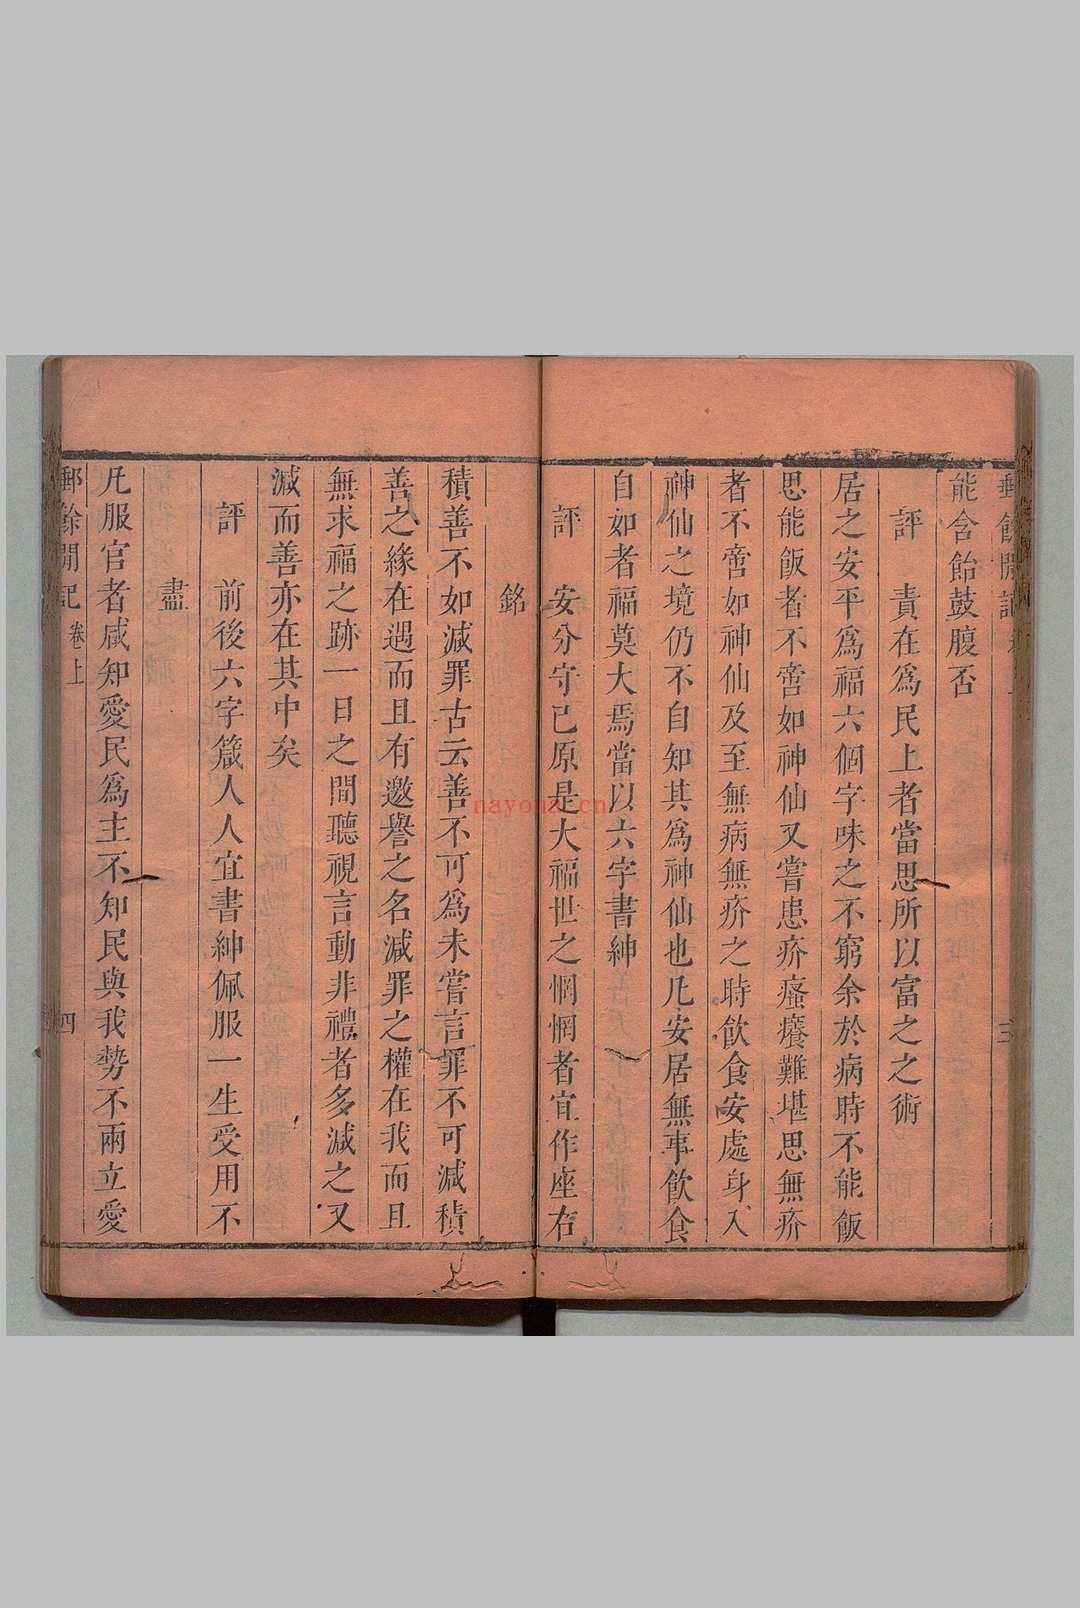 郵餘閒記 卷上 三
能含飴鼓腹否
評 責在爲民上者當思所以富之之術
居之安平爲福六個字味之不窮余於病時不能飯
思能飯者不啻如神仙又嘗患疥瘙癢難堪思無疥
者不啻如神仙及至無病無疥之時飲食安處身入
神仙之境仍不自知其爲神仙也凡安居無事飲食
自如者福莫大焉當以六字書紳
評 安分守己原是大福世之惘惘者宜作座右
銘
積善不如減罪古云善不可爲未嘗言罪不可減積
善之緣在遇而且有邀譽之名減罪之權在我而且
無求福之跡一日之間聽視言動非禮者多減之又
減而善亦在其中矣
評 前後六字箴人人宜書紳佩服一生受用不
盡
凡服官者咸知愛民爲主不知民與我勢不兩立愛
郵餘閒記 卷上 四
nayona.cn